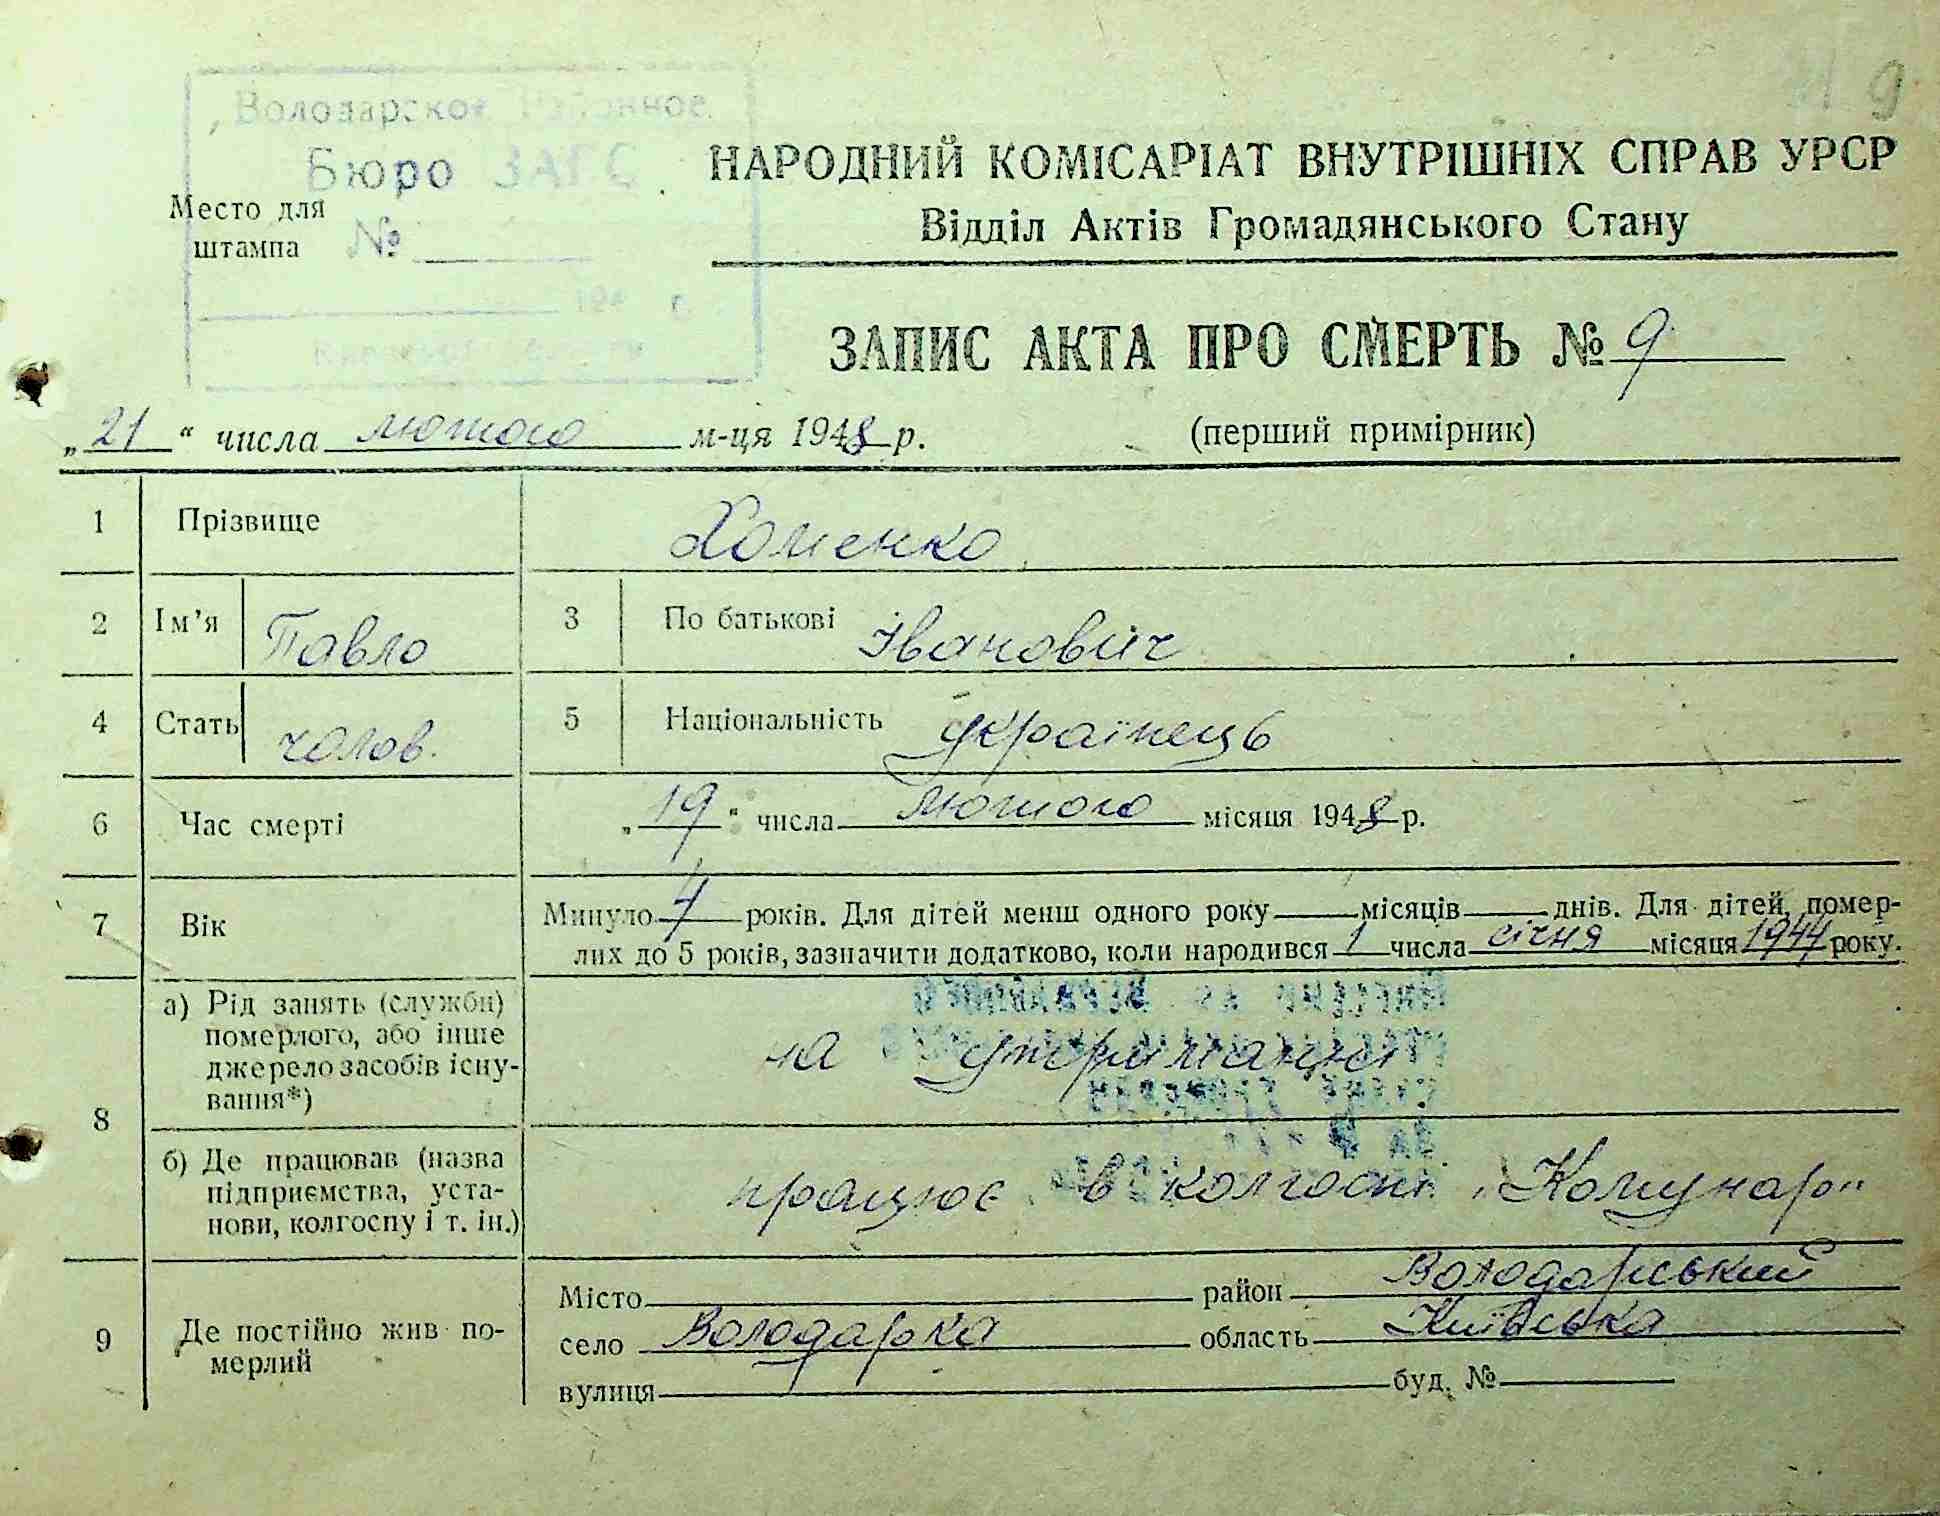 Володарское Районное
Бюро ЗАГС
Место для
штампа
№
194 г.
9
НАРОДНИЙ КОМІСАРІАТ ВНУТРІШНІХ СПРАВ УРСР
Відділ Актів Громадянського Стану
ЗАПИС АКТА ПРО СМЕРТЬ № 9
„21“ числа лютого м-ця 1948 р. (перший примірник)
1 Прізвище Хоменко
2 Ім'я Павло 3 По батькові Іванович
4 Стать чолов. 5 Національність українець
6 Час смерті „19“ числа лютого місяця 1948 р.
7 Вік Минуло 4 років. Для дітей менш одного року місяців днів. Для дітей, помер-
лих до 5 років, зазначити додатково, коли народився 1 числа січня місяця 1944 року.
8 а) Рід занять (служби)
померлого, або інше
джерело засобів існу-
вання*)
на утриманні
б) Де працював (назва
підприємства, уста-
нови, колгоспу і т. ін.)
працює в колгоспі „Комунар“
9 Де постійно жив по-
мерлий
Місто район Володарський
село Володарка область Київська
вулиця буд. №